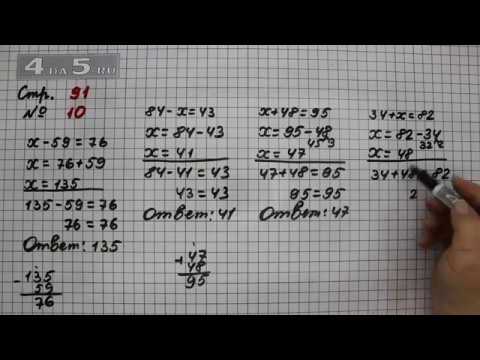 4DA5.RU
Стр. 91
№ 10
x - 59 = 76
x = 76 + 59
x = 135
135 - 59 = 76
76 = 76
Ответ: 135
- 135
59
76
84 - x = 43
x = 84 - 43
x = 41
84 - 41 = 43
43 = 43
Ответ: 41
+ 47
48
95
x + 48 = 95
x = 95 - 48
x = 47
47 + 48 = 95
95 = 95
Ответ: 47
34 + x = 82
x = 82 - 34
x = 48
34 + 48 = 82
2